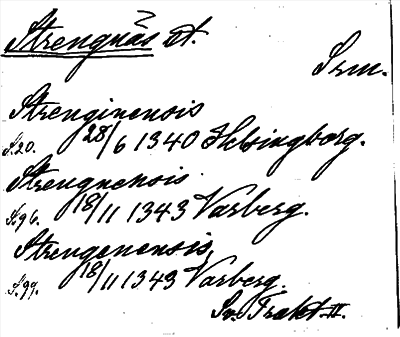 Strengnäs st.
Srm.
Strenginensis
S.20. 28/6 1340 Helsingborg.
Strengnensis
S.96. 18/11 1343 Varberg.
Strengenensis
S.99. 18/11 1343 Varberg.
Sv. Trakt. II.